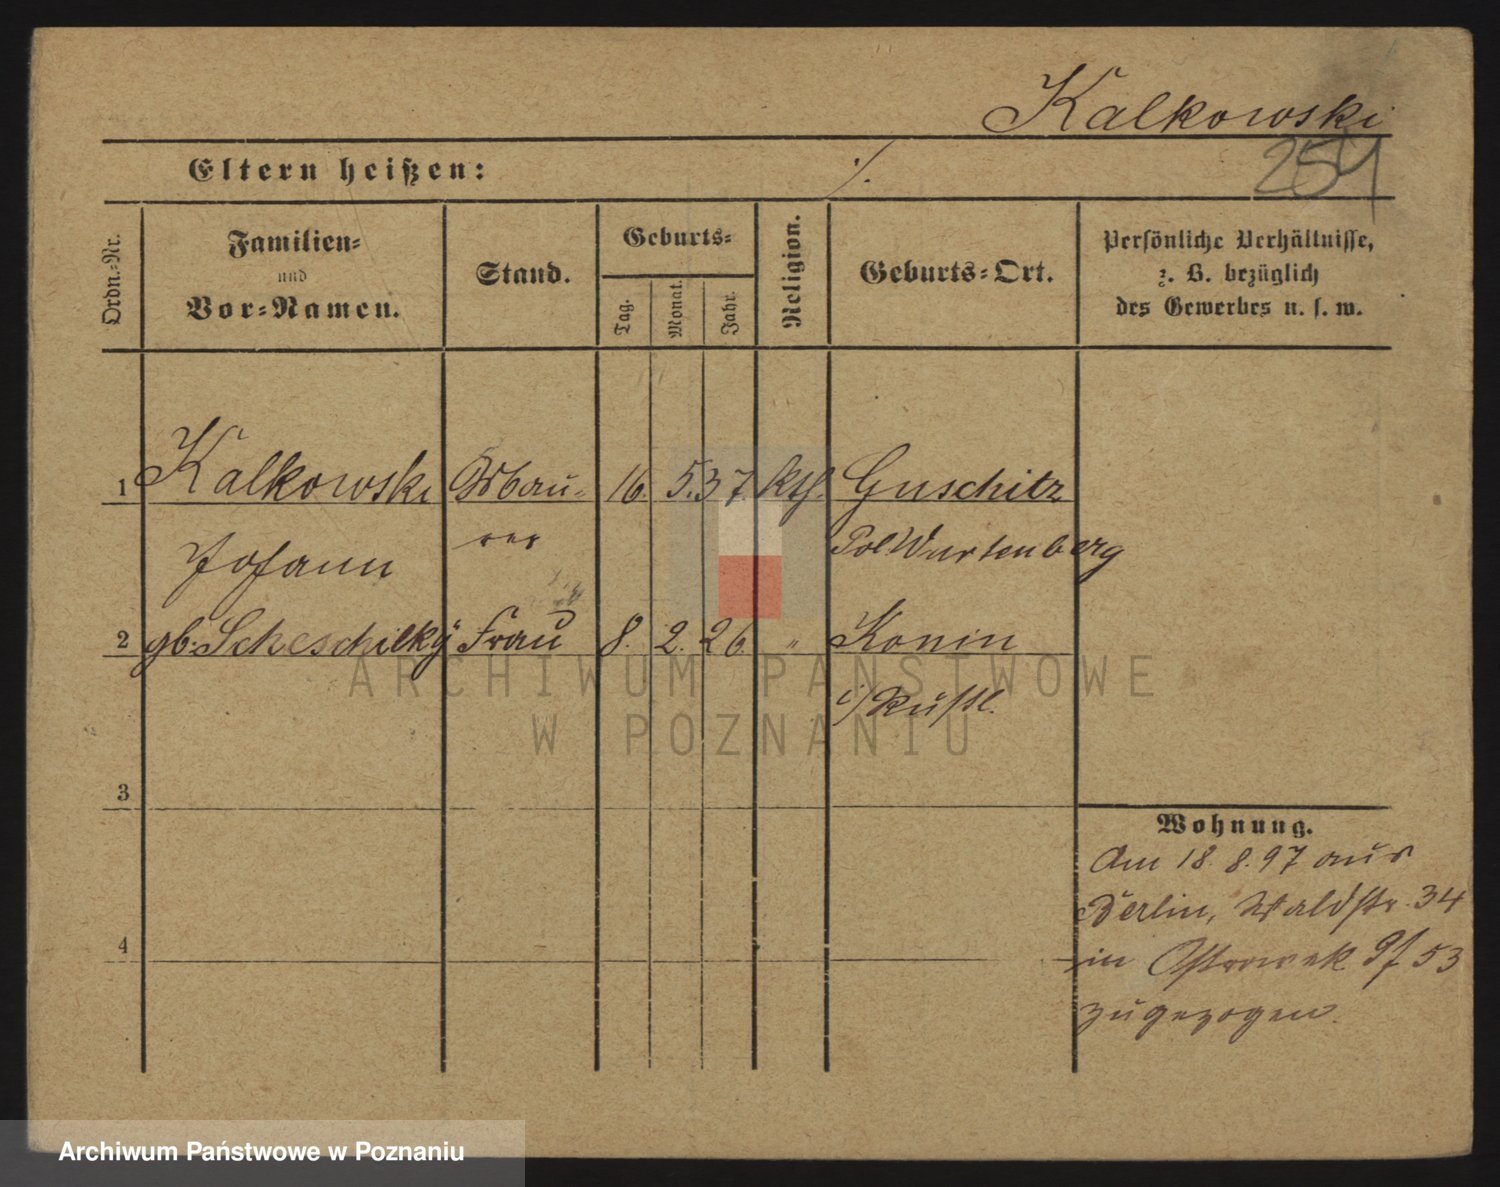 Kalkowski
254
Eltern heißen: ./.
Ordn.-Nr.
Familien-
und
Vor-Namen.
Stand.
Geburts-
Tag.
Monat.
Jahr.
Religion.
Geburts-Ort.
Persönliche Verhältnisse,
z. B. bezüglich
des Gewerbes u. s. w.
1 Kalkowski 16. 5. 37. kth. Guschitz
Johann Pol Wartenberg
2 gb. Scheschilky Frau 8. 2. 26 " Konin
i/Rußl.
3
Wohnung.
Am 18. 8. 97 aus
Berlin, Waldstr. 34
4
in Ostrowek 53
zugezogen.
ARCHIWUM PAŃSTWOWE
W POZNANIU
Archiwum Państwowe w Poznaniu